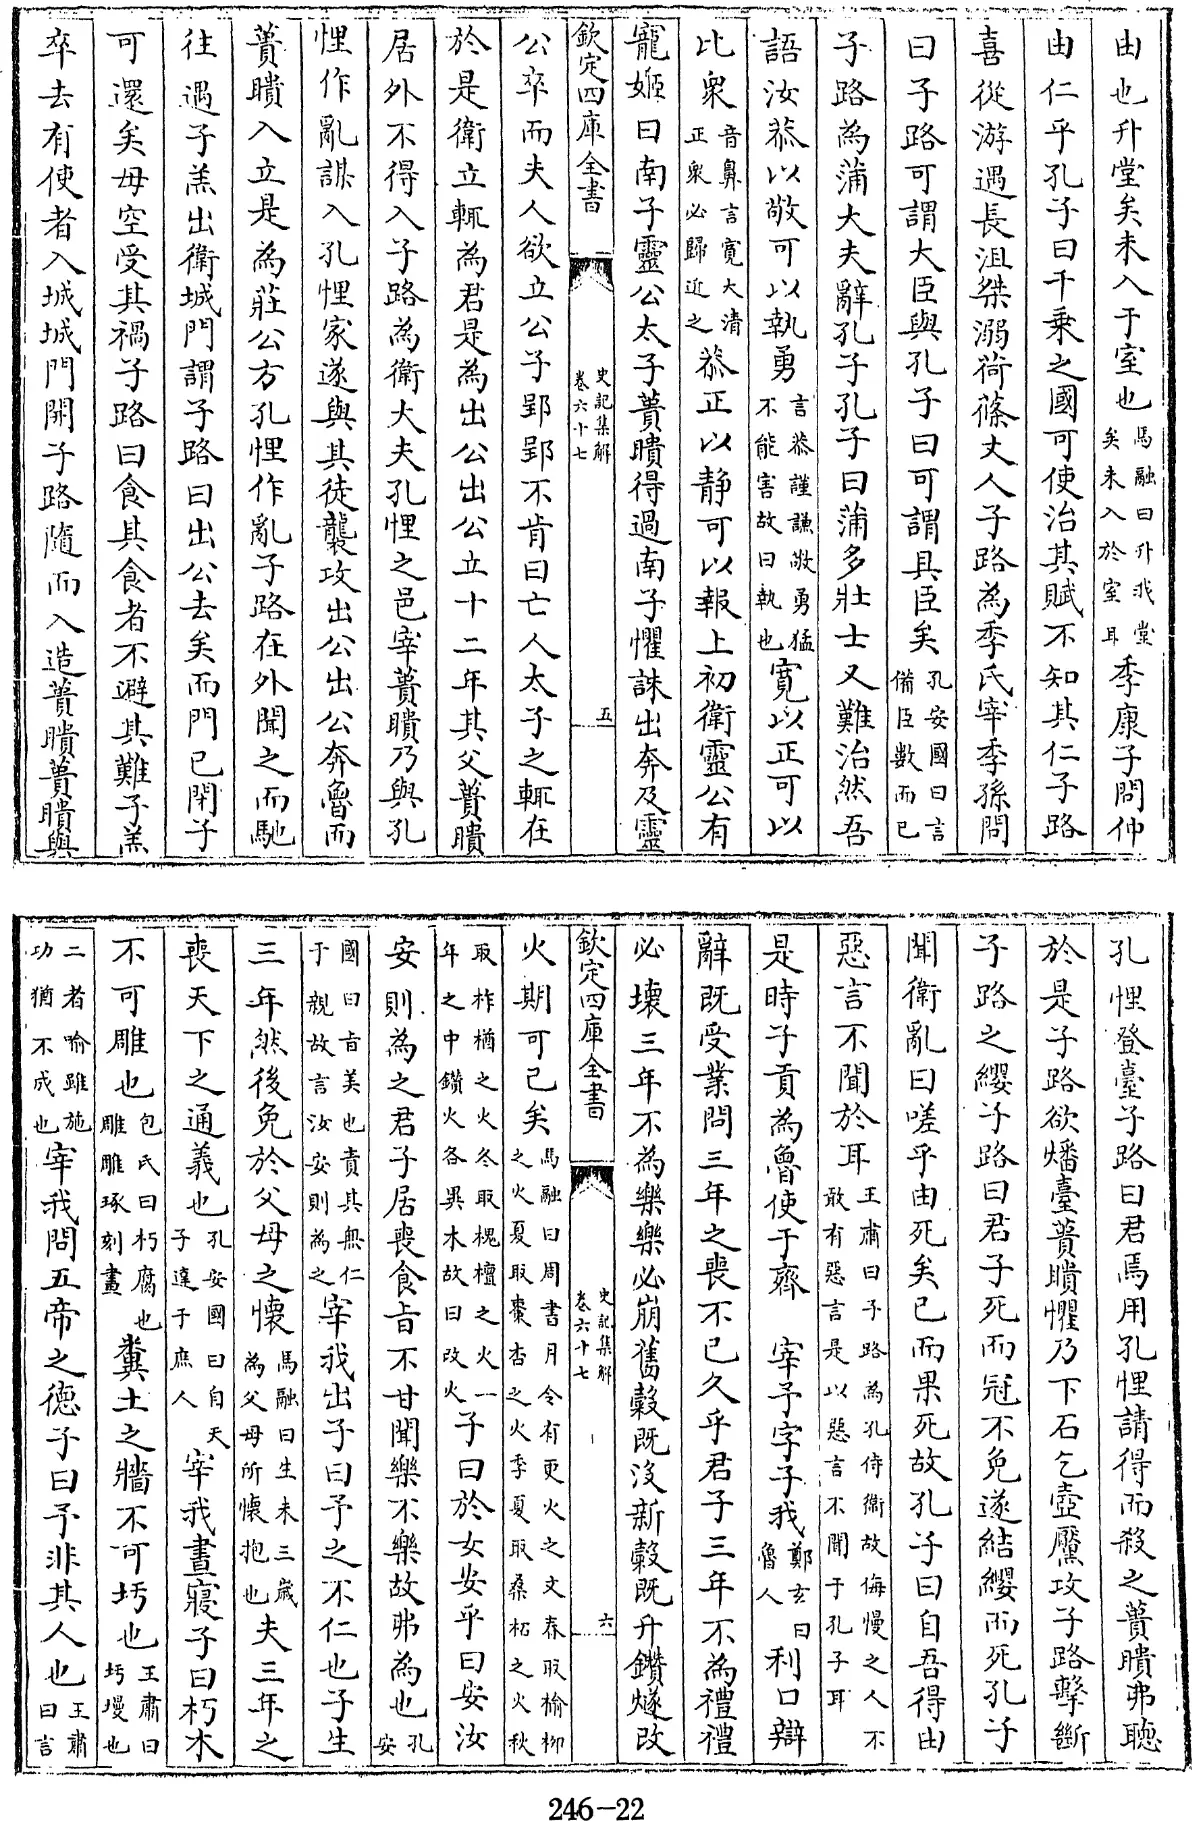 由也升堂矣未入于室也馬融曰升我堂矣未入於室耳季康子問仲
由仁乎孔子曰千乗之國可使治其賦不知其仁子路
喜從游遇長沮桀溺荷蓧丈人子路為季氏宰季孫問
曰子路可謂大臣與孔子曰可謂具臣矣孔安國曰言備臣數而已
子路為蒲大夫辭孔子孔子曰蒲多壯士又難治然吾
語汝恭以敬可以執勇言恭謹謙敬勇猛不能害故曰執也寛以正可以
比衆音鼻言寛大清正衆必歸近之恭正以静可以報上初衛靈公有
寵姬曰南子靈公太子蕢聵得過南子懼誅出奔及靈
欽定四庫全書
史記集解
卷六十七
五
公卒而夫人欲立公子郢郢不肯曰亡人太子之輒在
於是衛立輒為君是為出公出公立十二年其父蕢聵
居外不得入子路為衛大夫孔悝之邑宰蕢聵乃與孔
悝作亂謀入孔悝家遂與其徒襲攻出公出公奔魯而
蕢聵入立是為莊公方孔悝作亂子路在外聞之而馳
往遇子羔出衛城門謂子路曰出公去矣而門已閉子
可還矣毋空受其禍子路曰食其食者不避其難子羔
卒去有使者入城城門開子路隨而入造蕢聵蕢聵與
孔悝登臺子路曰君焉用孔悝請得而殺之蕢聵弗聽
於是子路欲燔臺蕢聵懼乃下石乞壺黶攻子路擊斷
子路之纓子路曰君子死而冠不免遂結纓而死孔子
聞衛亂曰嗟乎由死矣已而果死故孔子曰自吾得由
惡言不聞於耳王肅曰子路為孔侍衛故侮慢之人不敢有惡言是以惡言不聞于孔子耳
是時子貢為魯使于齊　宰予字子我鄭玄曰魯人利口辯
辭既受業問三年之喪不已久乎君子三年不為禮禮
必壞三年不為樂樂必崩舊穀既沒新穀既升鑽燧改
欽定四庫全書
史記集解
卷六十七
六
火期可已矣馬融曰周書月令有更火之文春取榆柳之火夏取棗杏之火季夏取桑柘之火秋
取柞楢之火冬取槐檀之火一年之中鑽火各異木故曰改火子曰於女安乎曰安汝
安則為之君子居喪食旨不甘聞樂不樂故弗為也孔安
國曰旨美也責其無仁于親故言汝安則為之宰我出子曰予之不仁也子生
三年然後免於父母之懷馬融曰生未三歲為父母所懷抱也夫三年之
喪天下之通義也孔安國曰自天子達于庶人宰我晝寢子曰朽木
不可雕也包氏曰朽腐也雕雕琢刻畫糞土之牆不可圬也王肅曰圬墁也
二者喻雖施功猶不成也宰我問五帝之德子曰予非其人也王肅曰言
246-22